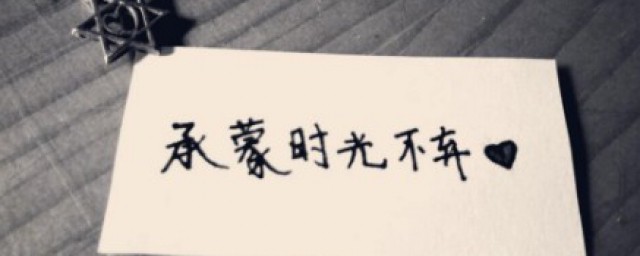 承蒙时光不弃♥